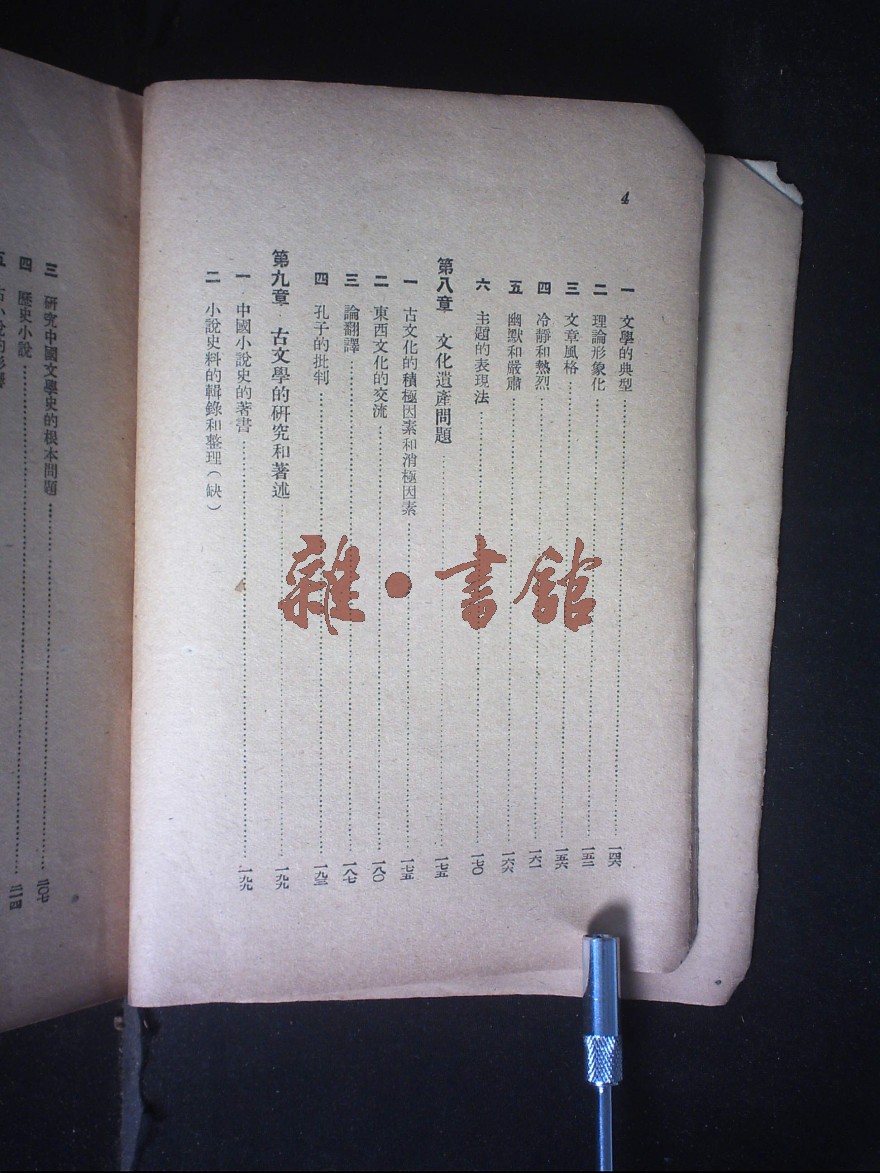 4
一 文學的典型……一四六
二 理論形象化……一五二
三 文章風格……一五六
四 冷靜和熱烈……一六一
五 幽默和嚴肅……一六六
六 主題的表現法……一七〇
第八章 文化遺產問題……一七五
一 古文化的積極因素和消極因素……一七五
二 東西文化的交流……一八〇
三 論翻譯……一八七
四 孔子的批判……一九三
第九章 古文學的研究和著述……一九九
一 中國小說史的著書……一九九
二 小說史料的輯錄和整理(缺)
三 研究中國文學史的根本問題……二〇七
四 歷史小說……二一四
五
雜·書館